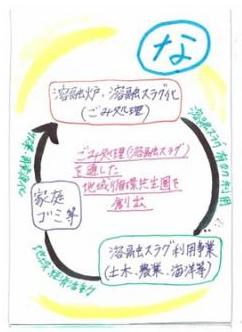 な
溶融炉、溶融スラグ化
(ごみ処理)
ごみ処理(溶融スラグ)
を通した
地域循環共生圏を
創出
家庭
ゴミ等
溶融スラグ利用事業
(土木、農業、海洋等)
溶融スラグ有効利用